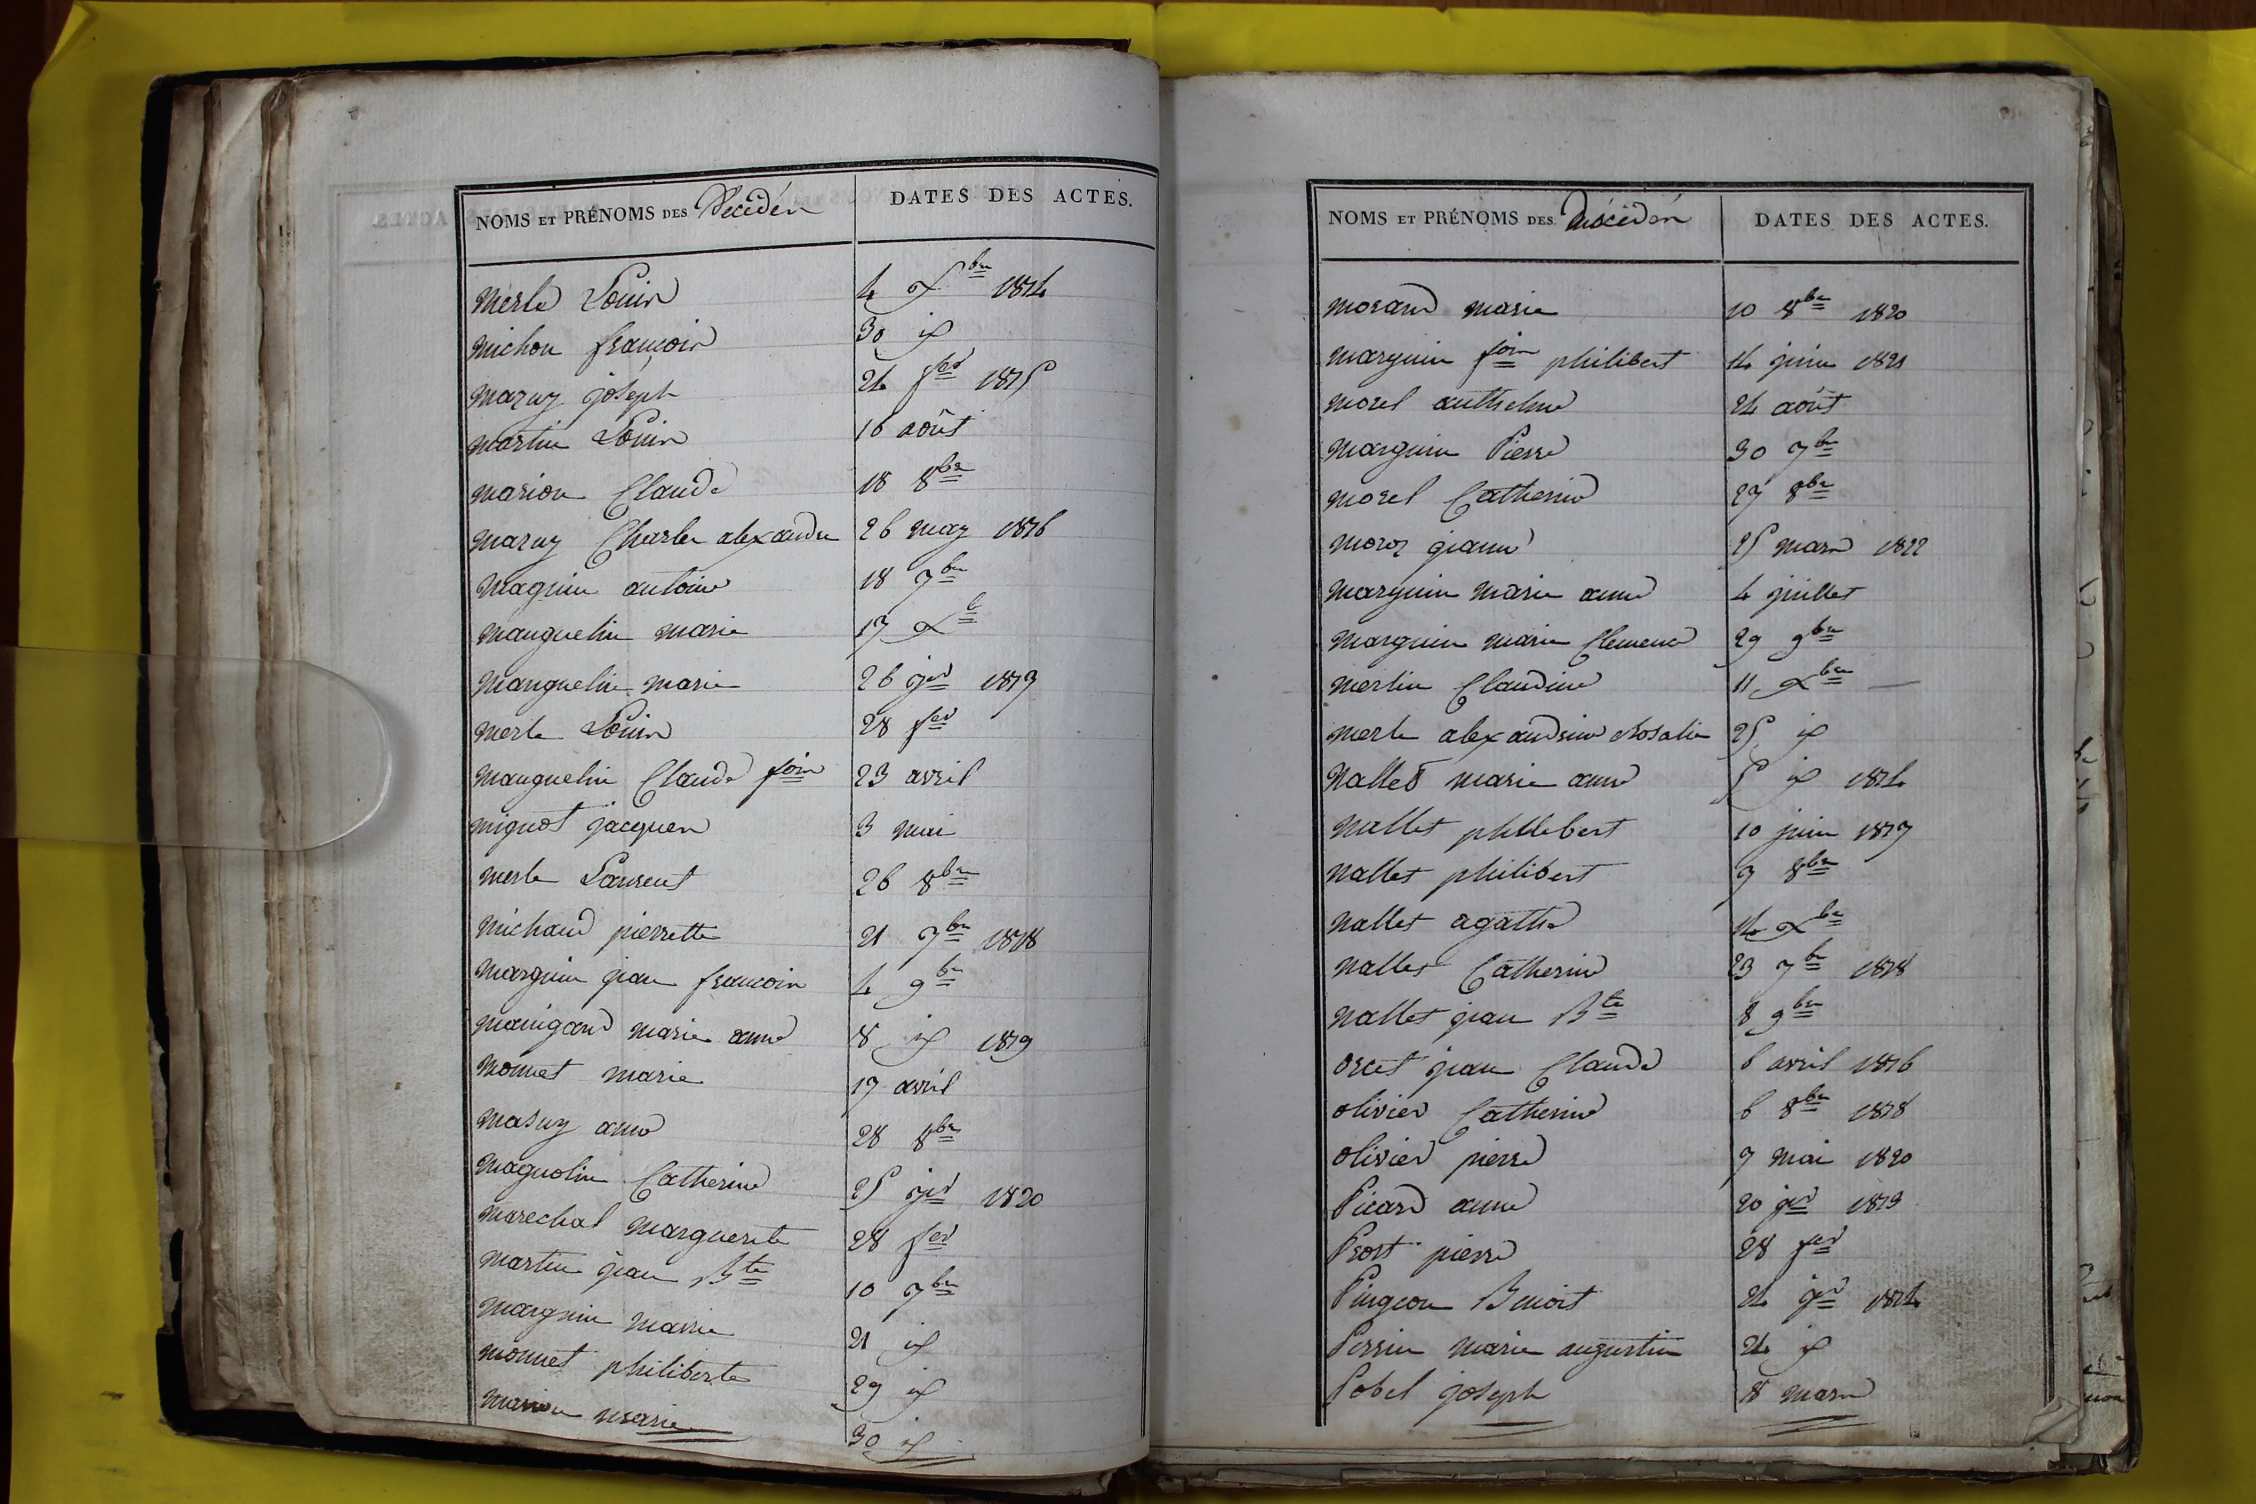 NOMS ET PRÉNOMS DES Décédés
DATES DES ACTES.
Merle Louis 4 Xbre 1814
Michon françois 30 id
Mazuy joseph 24 fer 1815
Martin Louis 16 août
Marion Claude 18 8bre
Mazuy Charles alexandre 26 may 1816
Maguin antoine 18 7bre
Manguelin marie 17 Xb
Manguelin marie 26 jer 1819
Merle Louis 28 fer
Manguelin Claude fois 23 avril
Mignot jacques 3 mai
Merle Laurent 26 8bre
Michaud pierrette 21 7bre 1818
Marguin jean françois 4 9bre
Mainigand marie anne 8 id 1819
Monnet marie 17 avril
Masuy anne 28 8bre
Magnolin Catherine 25 jer 1820
Marechal Marguerite 28 fer
Martin jean Bte 10 7bre
Marguin Marie 21 id
Monnet philiberte 29 id
Marion marie 30 id
NOMS ET PRÉNOMS DES Décédés
DATES DES ACTES.
Morand marie 10 8bre 1820
Marguin fois philibert 14 juin 1821
Morel anthelme 24 août
Marguin Pierre 30 7bre
Morel Catherine 27 8bre
Moroz jeanne 25 mars 1822
Marguin Marie anne 4 juillet
Marguin marie Clemence 29 9bre
Merlin Claudine 11 Xbre
Merle alexandrine Rosalie 25 id
Nallet marie anne 5 id 1814
Nallet philibert 10 juin 1817
Nallet philibert 9 8bre
Nallet agathe 14 Xbre
Nallet Catherine 23 7bre 1818
Nallet jean Bte 8 9bre
Orcet jean Claude 6 avril 1816
Olivier Catherine 6 8bre 1818
Olivier pierre 7 mai 1820
Picard anne 20 jer 1813
Prost pierre 28 fer
Pingeon Benoit 24 jer 1814
Perrin Marie augustin 24 id
Pobel joseph 8 mars